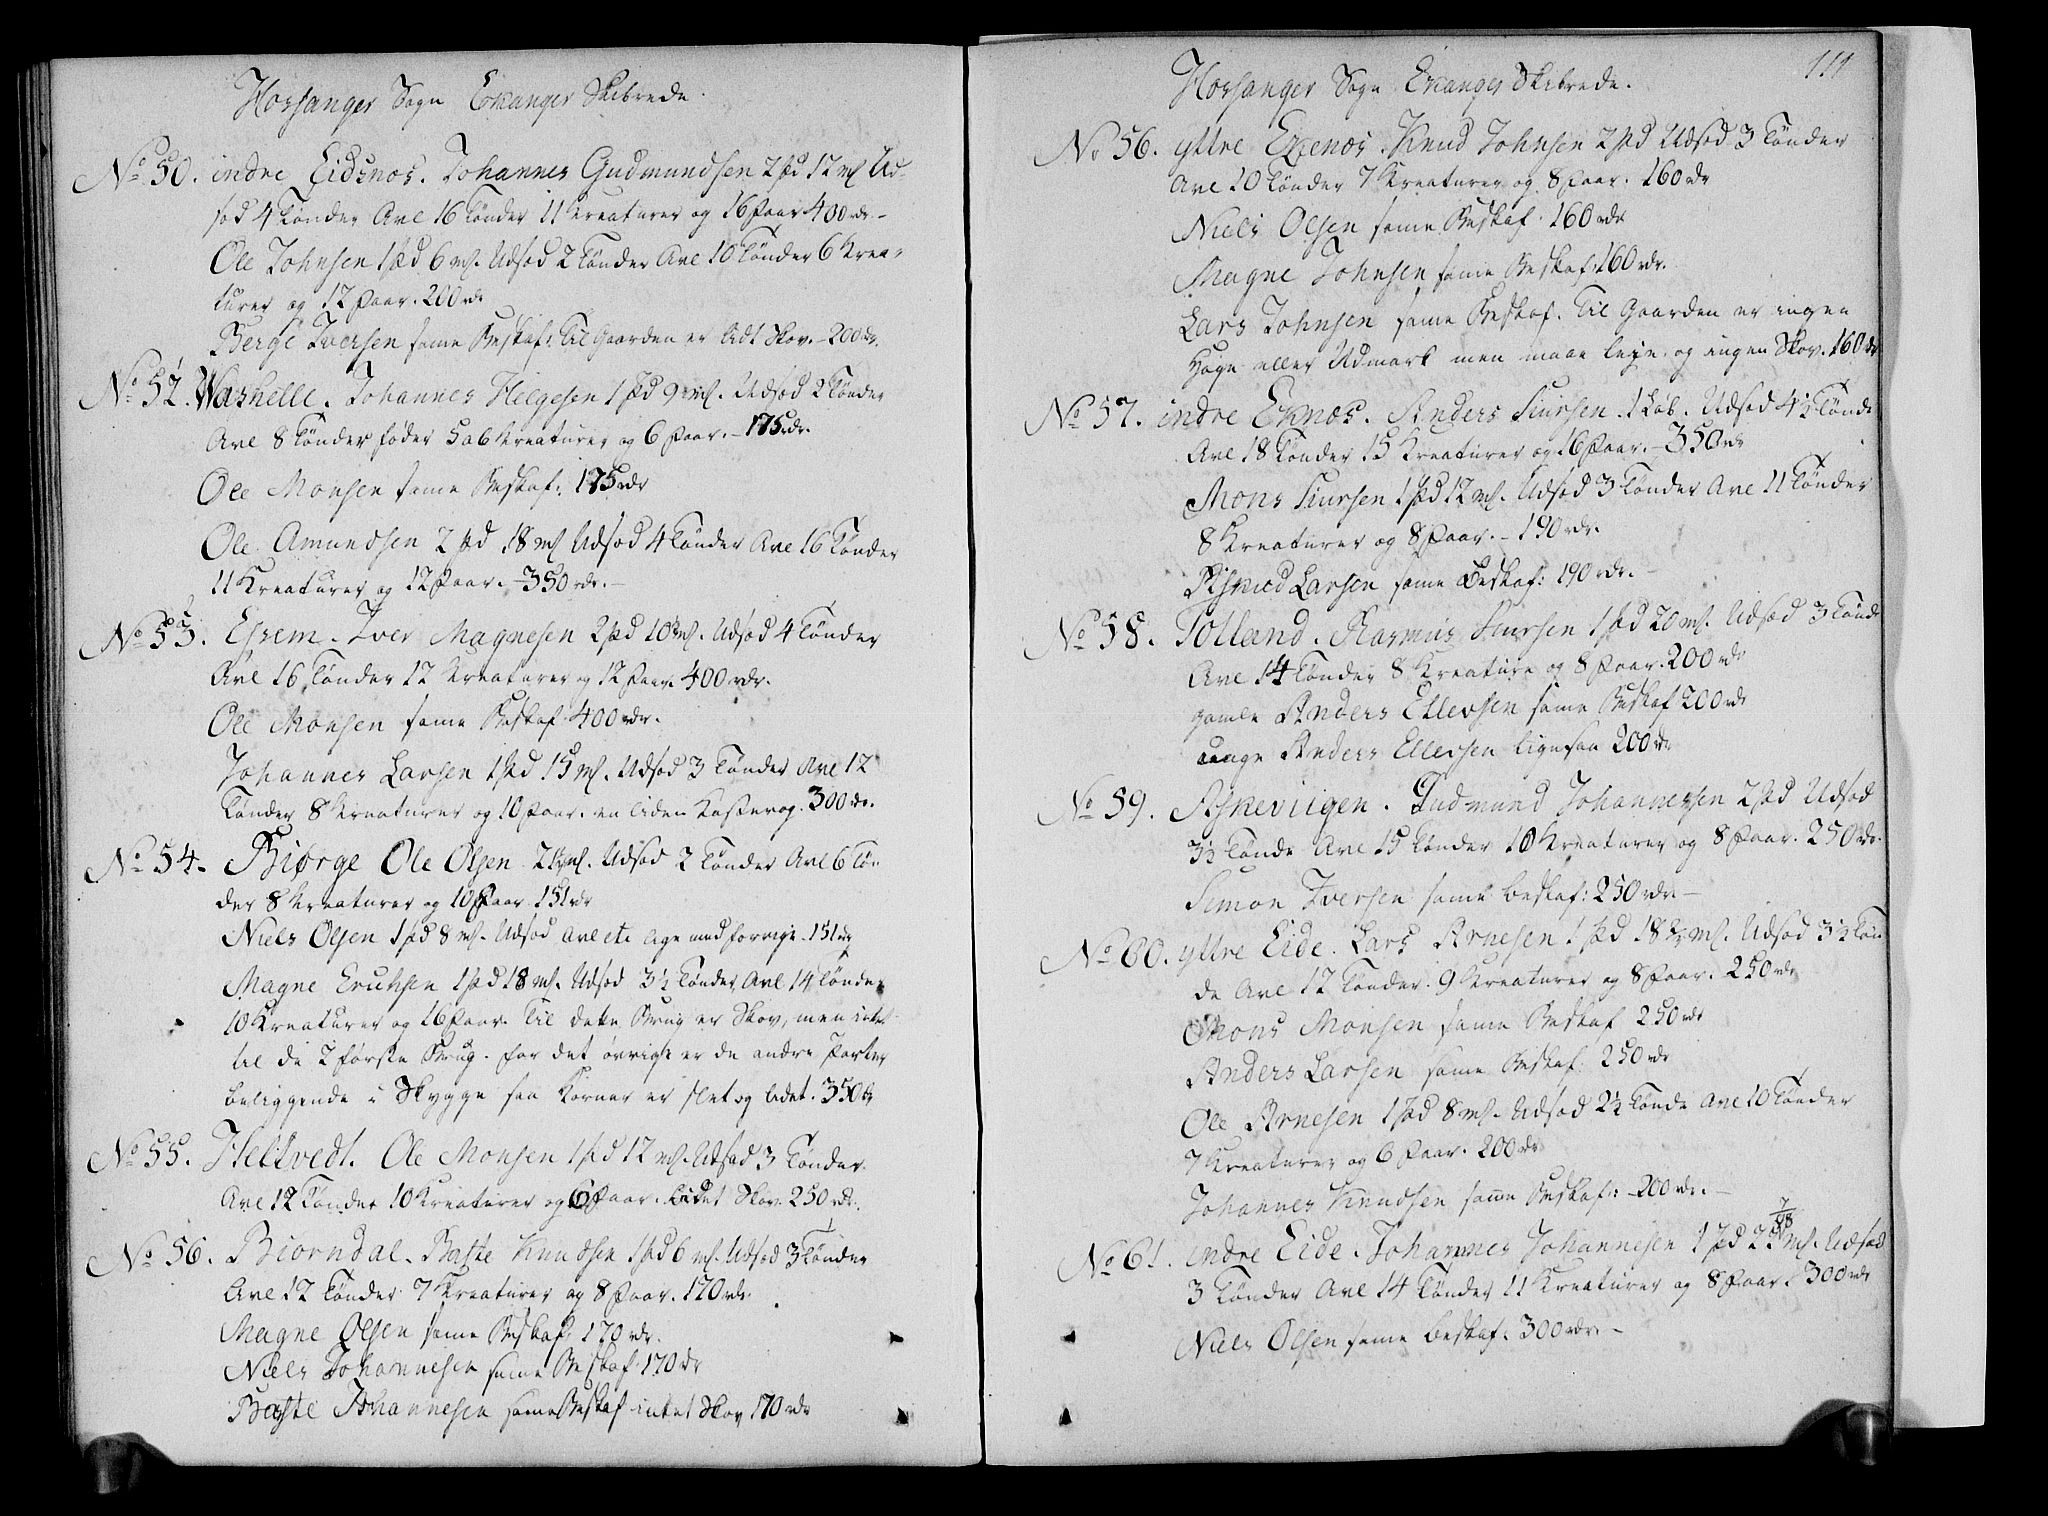 Hosanger Sogn Exanger Skibrede.
No 50. indre Eidsnos. Johannes Gudmundsen 2 pd 12 ml Ud-
sod 4 Tønder Avl 16 Tønder 11 Kreaturer og 16 Faar 400 rdr-
Ole Johnsen 1 pd 6 ml. Udsod 2 Tønder Avl 10 Tønder 6 Krea-
turer og 12 Faar. 200 rdr
Berge Iversen same Beskaf: Til Gaarden er lidt Skov. - 200 rdr.
No 52. Johannes Helgesen 1 pd 9 ml. Udsod 2 Tønder
Avl 8 Tønder foder 5 a 6 Kreaturer og 6 Faar. - 175 rdr.
Ole Monsen same Beskaf: 175 rdr
Ole Amundsen 2 pd 18 ml Udsod 4 Tønder Avl 16 Tønder
11 Kreaturer og 12 Faar. - 350 rdr. -
No 53. Iver Magnesen 2 pd Udsod 4 Tønder
Avl 16 Tønder 12 Kreaturer og 12 Faar. 400 rdr.
Ole Monsen same Beskaf 400 rdr.
Johannes Larsen 1 pd 15 ml. Udsod 3 Tønder Avl 12
Tønder 8 Kreaturer og 10 Faar. en liden 300 rdr.
No 54. Biørge Ole Olsen Udsod 2 Tønder Avl 6 Tøn-
der 8 Kreaturer og 10 Faar 151 rdr
Niels Olsen 1 pd 8 ml. Udsod Avl etc lige med forrige. 151 rdr
Magne Erichsen 1 pd 18 ml. Udsod 3½ Tønder Avl 14 Tønder
10 Kreaturer og 16 Faar. Til dette Brug er Skov, men intet
til de 2 første Brug. for det øvrige er de andre Parter
beliggende i Skygge saa Kornet er slet og ladet. 350 rdr
No 55. Heltvedt. Ole Monsen 1 pd 12 ml. Udsod 3 Tønder
Avl 12 Tønder 10 Kreaturer og 6 Faar. Lidet Skov. 250 rdr.
No 56. Biorndal. Baste Knudsen 1 pd 6 ml. Udsod 3 Tønder
Avl 12 Tønder 7 Kreaturer og 8 Faar. 170 rdr.
Magne Olsen same Beskaf: 170 rdr.
Niels Johannesen same Beskaf 170 rdr
Baste Johannesen same Beskaf intet Skov 170 rdr
111
Hosanger Sogn Exanger Skibrede.
No 56. yttre Exenos. Knud Johnsen 2 pd Udsod 3 Tønder
Avl 10 Tønder 7 Kreaturer og 8 Faar. 160 rdr
Niels Olsen same Beskaf. 160 rdr
Magne Johnsen same Beskaf: 160 rdr.
Lars Johnsen same Beskaf. Til Gaarden er ingen
Hage eller Udmark men maae leje og ingen Skov. 160 rdr
No 57. indre Exnos. Anders Siursen. 1 Løb. Udsod 4½ Tønde
Avl 18 Tønder 15 Kreaturer og 16 Faar. - 350 rdr
Mons Siursen 1 pd 12 ml. Udsod 3 Tønder Avl 11 Tønder
8 Kreaturer og 8 Faar. - 190 rdr.
Larsen same Beskaf: 190 rdr. -
No 58. Tolland. Rasmus Siursen 1 pd 20 ml. Udsod 3 Tønde
Avl 14 Tønder 8 Kreature og 8 Faar. 200 rdr
gamle Anders Ellevsen same Beskaf 200 rdr
unge Anders Ellevsen ligesaa 200 rdr
No 59. Askeviigen. Gudmund Johannesen 2 pd Udsod
3½ Tønde Avl 15 Tønder 10 Kreaturer og 8 Faar. 250 rdr.
Simon Iversen same beskaf: 250 rdr -
No 60. yttre Eide. Lars Arnesen 1 pd 18 ml. Udsod 3½ Tøn-
de Avl 12 Tønder. 9 Kreaturer og 8 Faar. 250 rdr
Mons Monsen same Beskaf 250 rdr
Anders Larsen same Beskaf. 250 rdr
Ole Arnesen 1 pd 8 ml. Udsod 2½ Tønde Avl 10 Tønder
7 Kreaturer og 6 Faar. 200 rdr
Johannes Knudsen same Beskaf: - 200 rdr. -
No 61. indre Eide. Johannes Johannesen 1 pd ml. Udsod
3 Tønder Avl 14 Tønder 11 Kreaturer og 8 Faar. 300 rdr
Niels Olsen same beskaf. 300 rdr. -